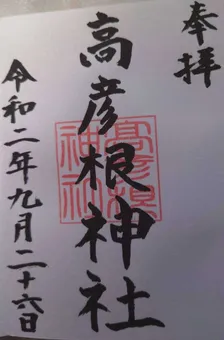 奉拝
高彦根神社
令和二年九月二十六日
高彦根
神社